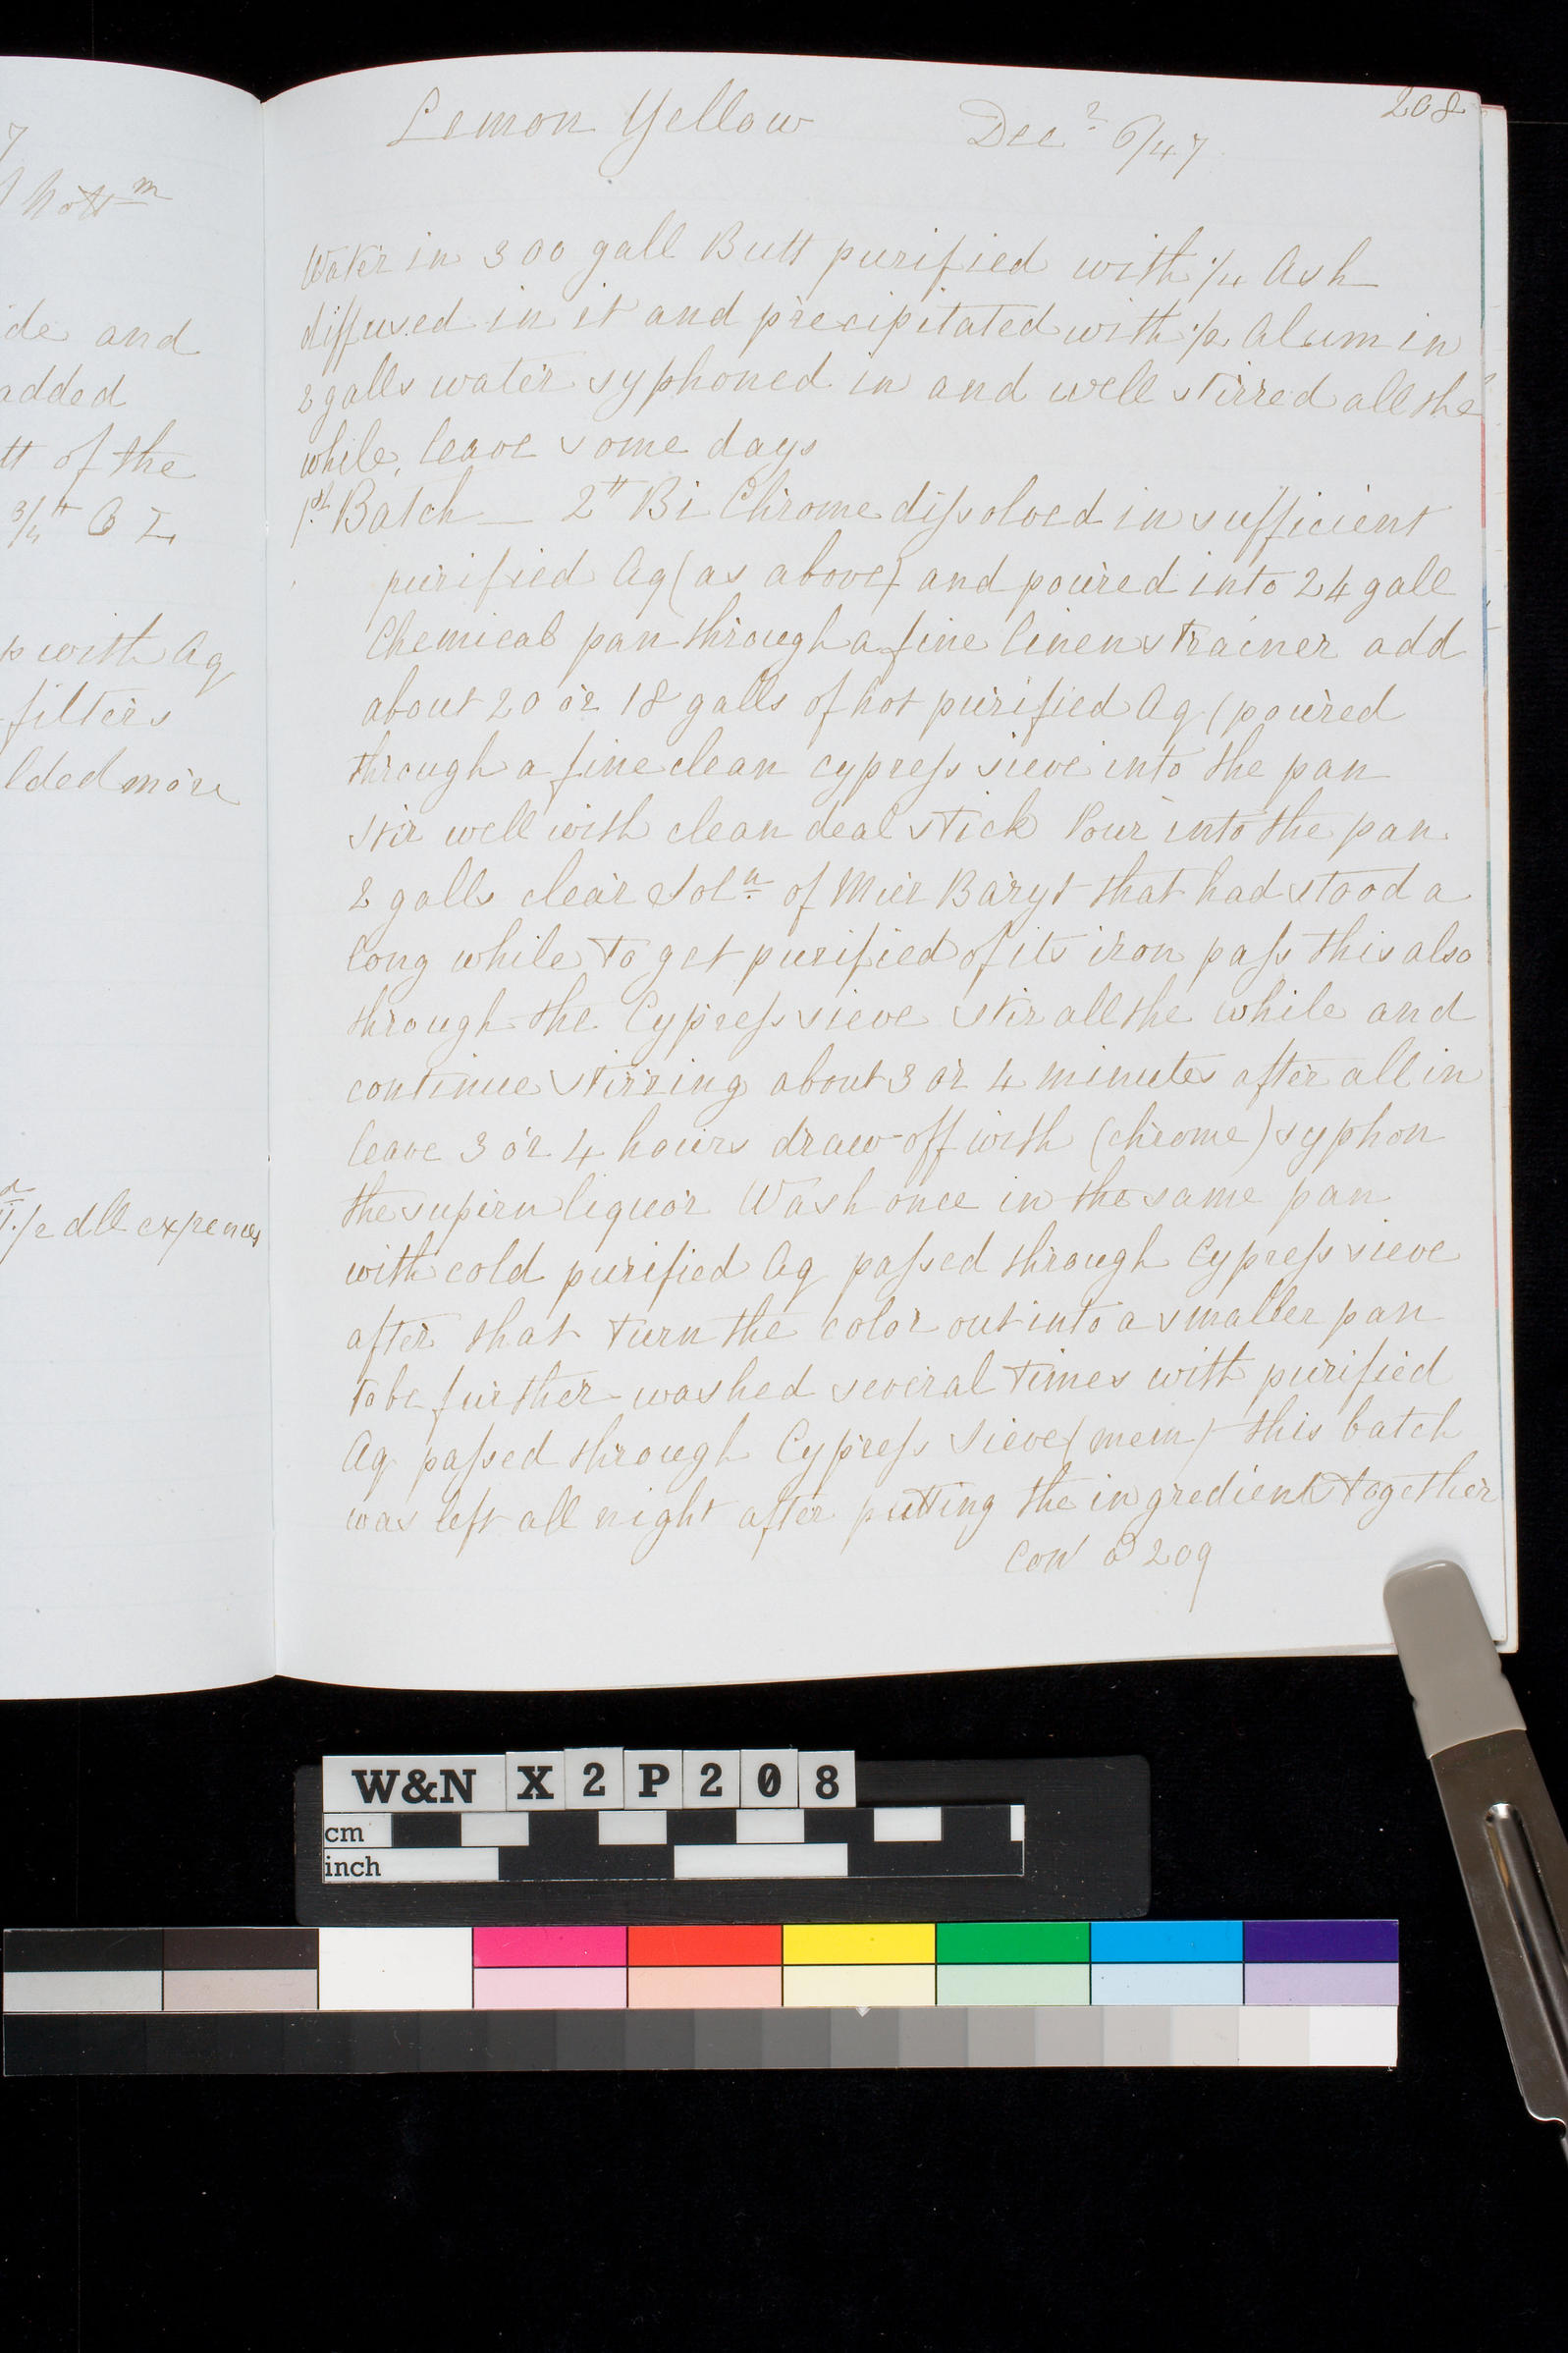 7
Nottm
ide and
added
tt of the
3/4 tt B Z
p with Aq
filters
lded more
1/2 dll expences
208
Lemon Yellow Decr 6/47
Water in 300 gall Butt purified with 1/4 Ash
diffused in it and precipitated with 1/2 Alum in
2 galls water syphoned in and well stirred all the
while, leave some days
1st Batch — 2tt Bi Chrome dissolved in sufficient
purified Aq (as above) and poured into 24 gall
Chemical pan through a fine linen strainer add
about 20 or 18 galls of hot purified Aq (poured
through a fine clean cypress sieve into the pan
stir well with clean deal stick Pour into the pan
2 galls clear Soln of Mur Baryt that had stood a
long while to get purified of its iron pass this also
through the Cypress sieve stir all the while and
continue stirring about 3 or 4 minutes after all in
leave 3 or 4 hours draw off with (chrome) syphon
the supern liquor Wash once in the same pan
with cold purified Aq passed through Cypress sieve
after that turn the color out into a smaller pan
to be further washed several times with purified
Aq passed through Cypress Sieve (mem) this batch
was left all night after putting the ingredients together
Con' a 209
W&N X2P208
cm
inch